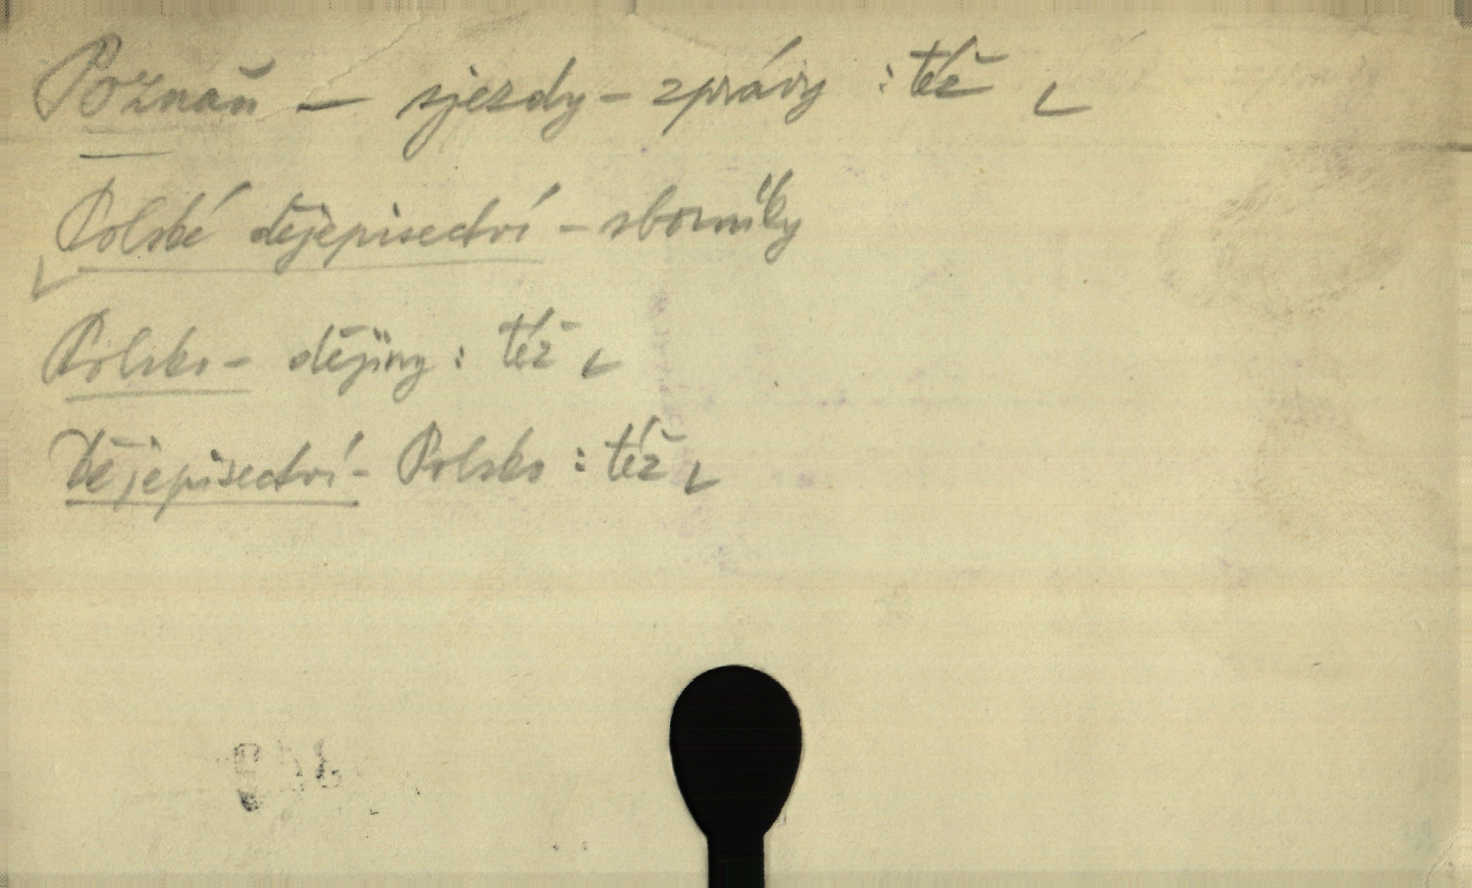 Poznaň – sjezdy – zprávy : též
Polské dějepisectví – sborníky
Polsko – dějiny : též
Dějepisectví – Polsko : též